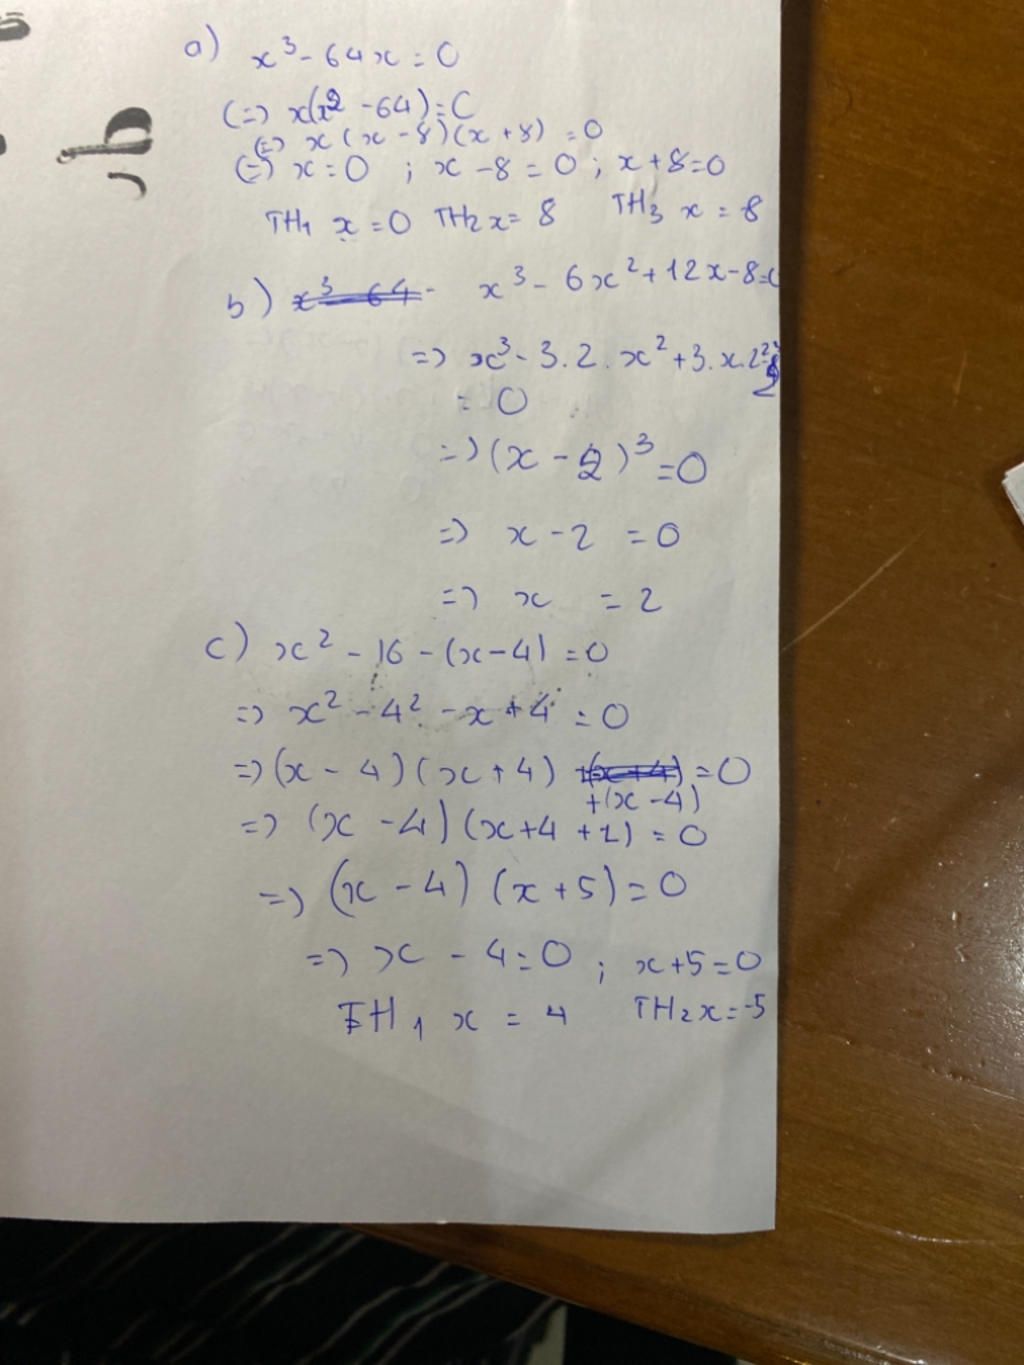 a) x³ - 64x = 0
(=) x(x² - 64) = C
(=) x (x - 8)(x + 8) = 0
(=) x = 0 ; x - 8 = 0 ; x + 8 = 0
TH₁ x = 0 TH₂ x = 8 TH₃ x = 8
b) x³ - 64 - x³ - 6x² + 12x - 8 = 0
=) x³ - 3.2.x² + 3.x.2²
= 0
=) (x - 2)³ = 0
=) x - 2 = 0
=) x = 2
c) x² - 16 - (x - 4) = 0
=) x² - 4² - x + 4 = 0
=) (x - 4)(x + 4) +(x+4) = 0
+(x - 4)
=) (x - 4)(x + 4 + 1) = 0
=) (x - 4) (x + 5) = 0
=) x - 4 = 0 ; x + 5 = 0
TH₁ x = 4 TH₂ x = -5